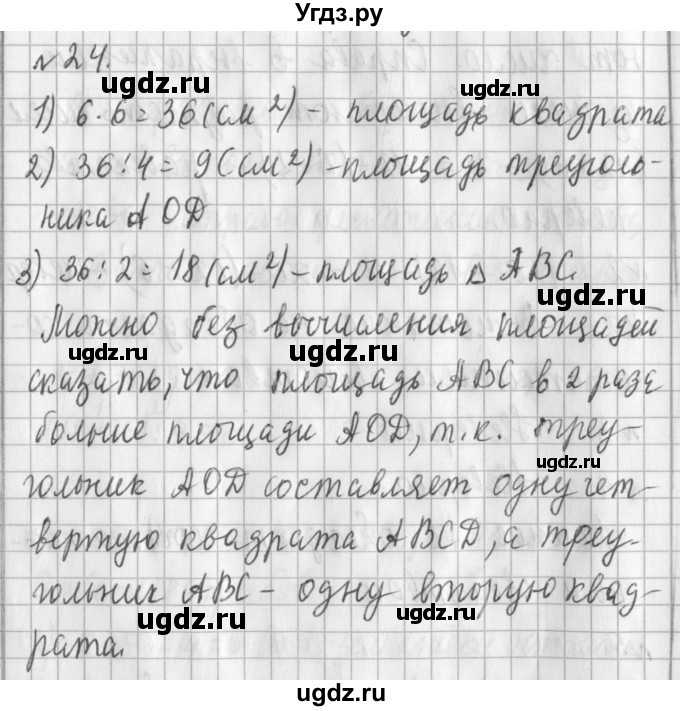 Угдз.ру
№24.
ugdz.ru ugdz.ru
1) 6·6=36(см²) - площадь квадрата
ugdz.ru
2) 36:4=9(см²) - площадь треуголь-
ника АОD
ugdz.ru
3) 36:2=18(см²) - площадь Δ АВС.
ugdz.ru
Можно без вычисления площадей
ugdz.ru ugdz.ru
сказать, что площадь АВС в 2 раза
больше площади АОD, т.к. треу-
ugdz.ru
гольник АОD составляет одну чет-
вертую квадрата АВСD, а треу-
гольник АВС - одну вторую квад-
ugdz.ru ugdz.ru
рата.
ugdz.ru